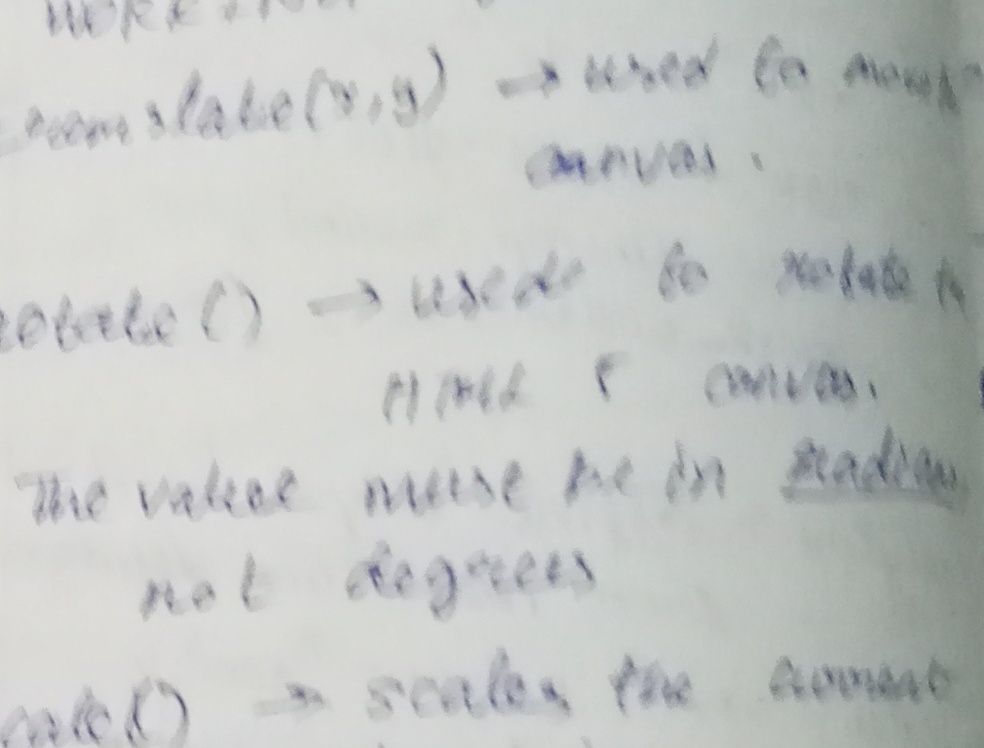 translate(x,y) → used to move
canvas.
rotate() → used to rotate
HTML 5 canvas.
The value must be in radian
not degrees
cale() → scales the current